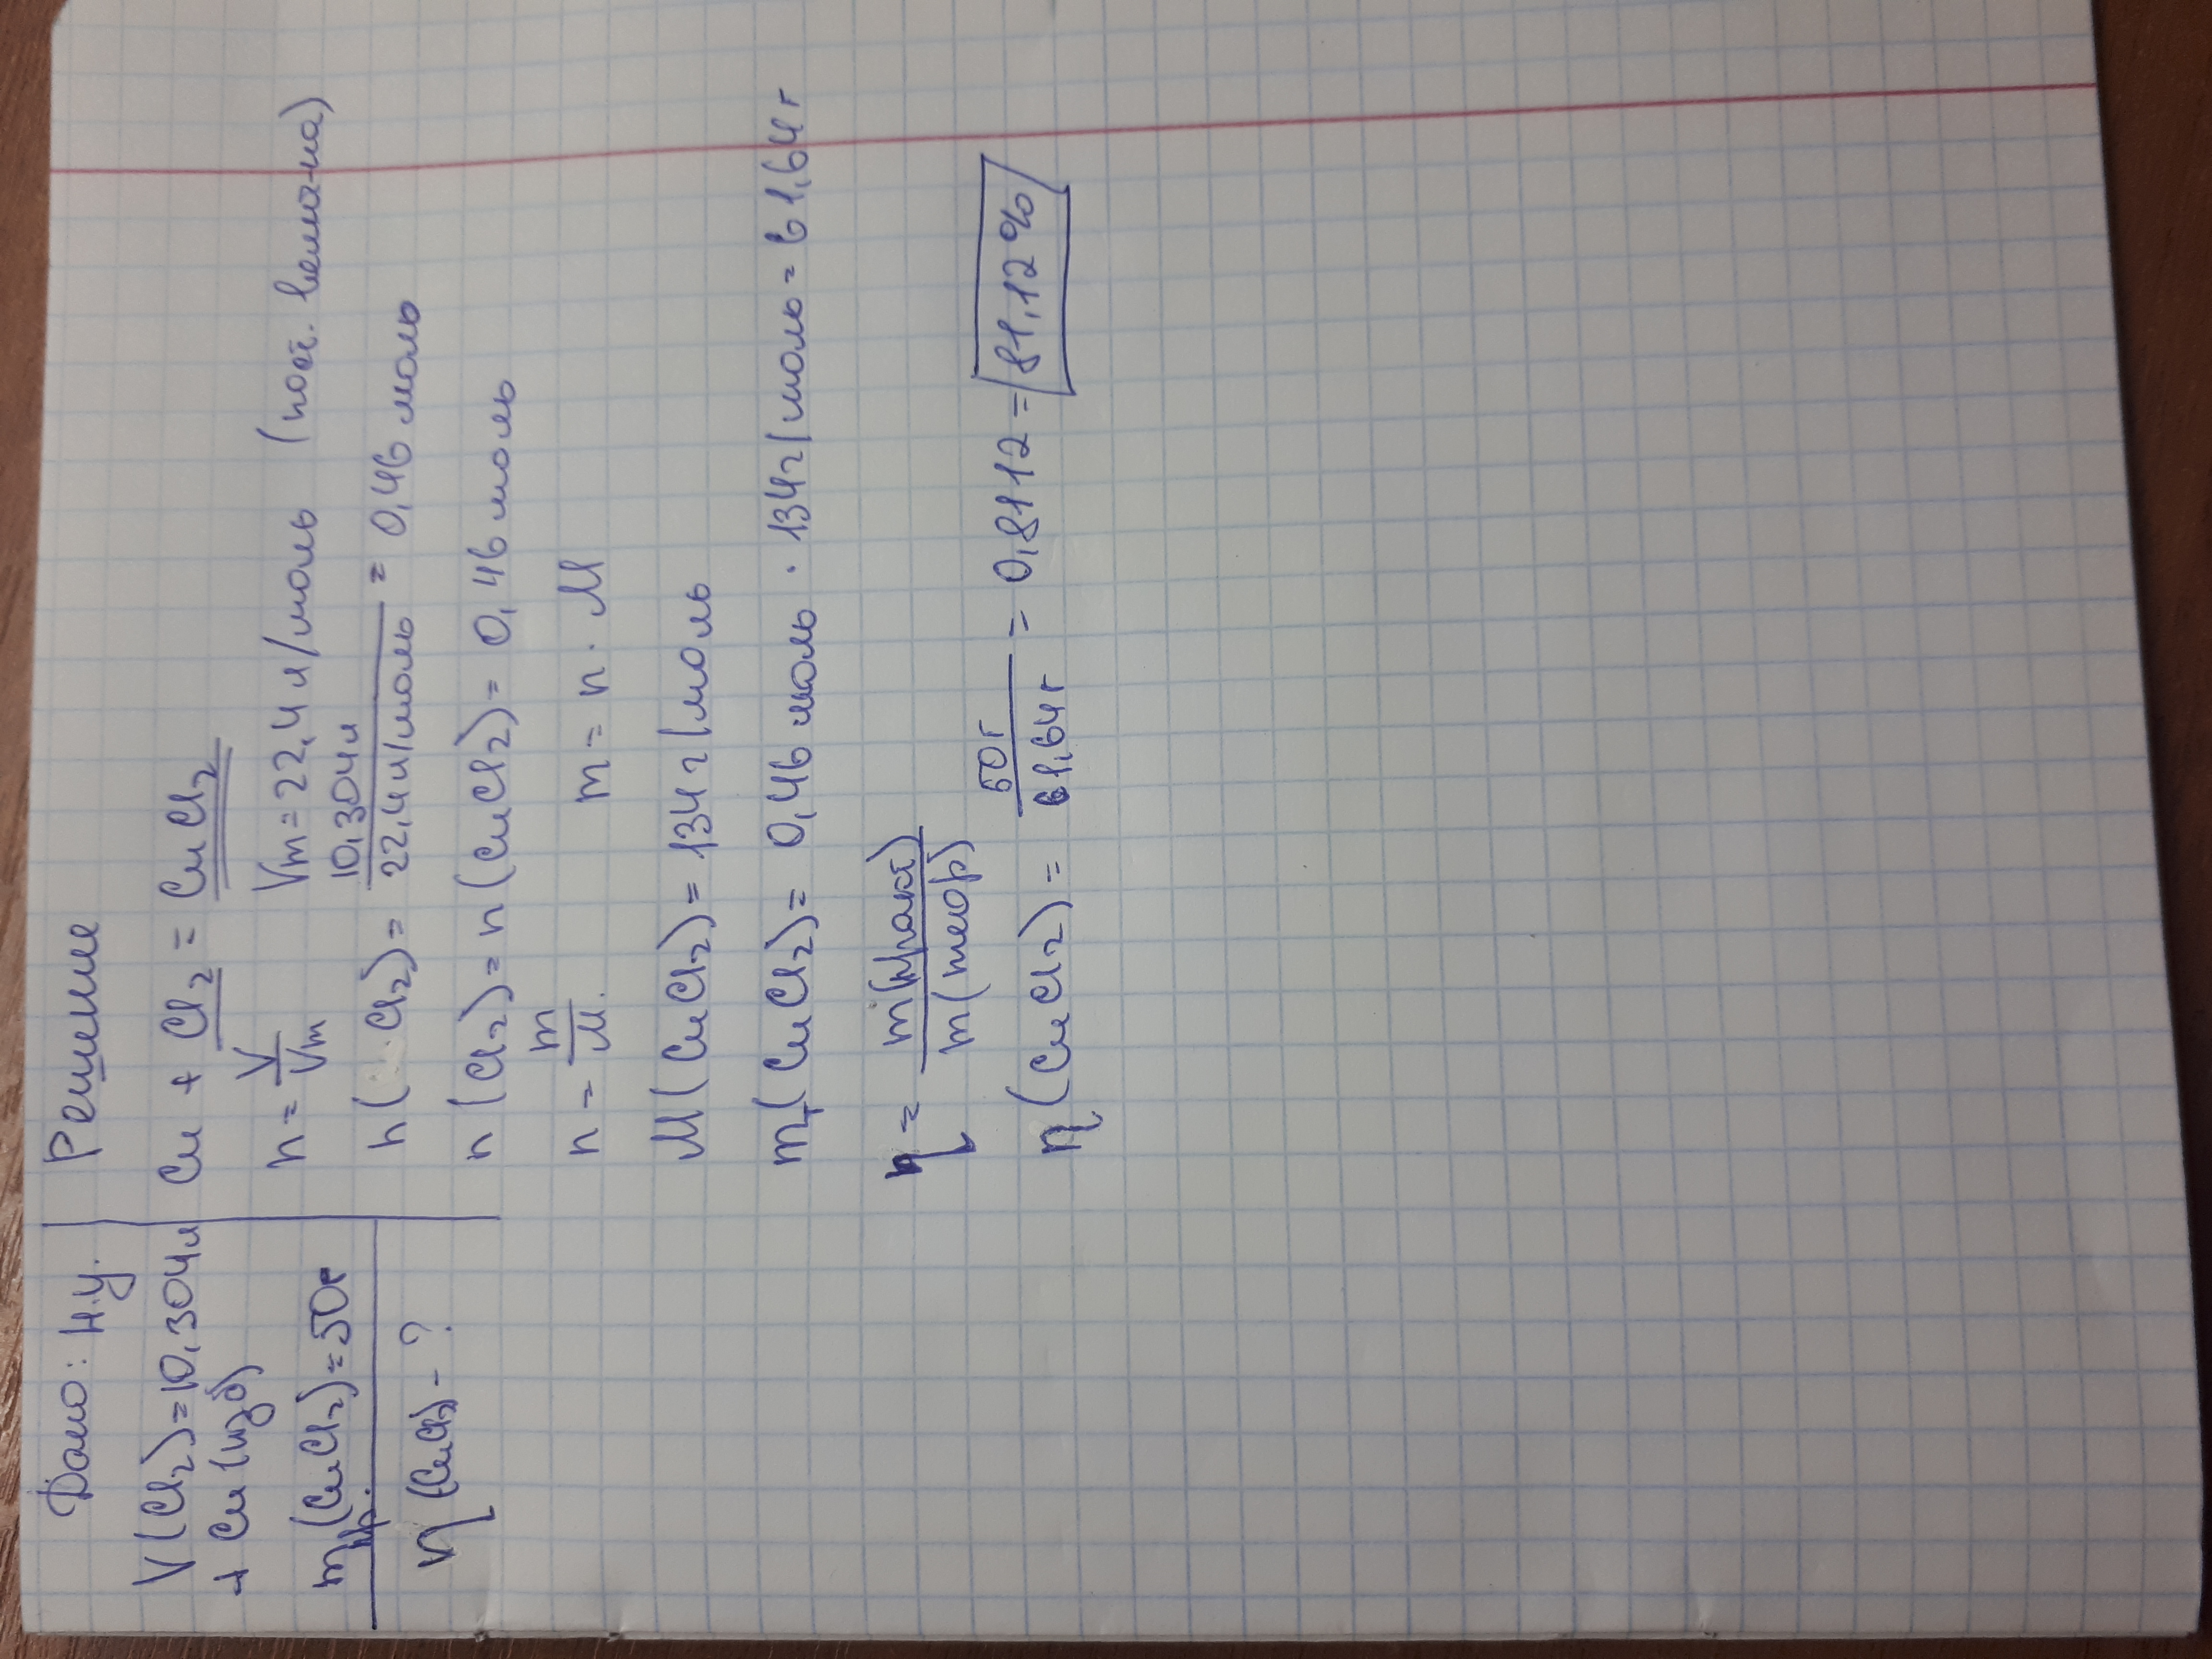 Дано: н.у.
V(Cl₂)=10,304л
+ Cu (изб)
mпр.(CuCl₂)=50г
η(CuCl₂) - ?
Решение
Cu + Cl₂ = CuCl₂
n = V/Vm Vm = 22,4 л/моль (пост. величина)
n(Cl₂) = 10,304л/22,4л/моль = 0,46 моль
n(Cl₂) = n(CuCl₂) = 0,46 моль
n = m/M. m = n · M
M(CuCl₂) = 134 г/моль
mт(CuCl₂) = 0,46 моль · 134г/моль = 61,64г
η = m(практ)/m(теор)
η(CuCl₂) = 50г/61,64г = 0,8112 = 81,12%